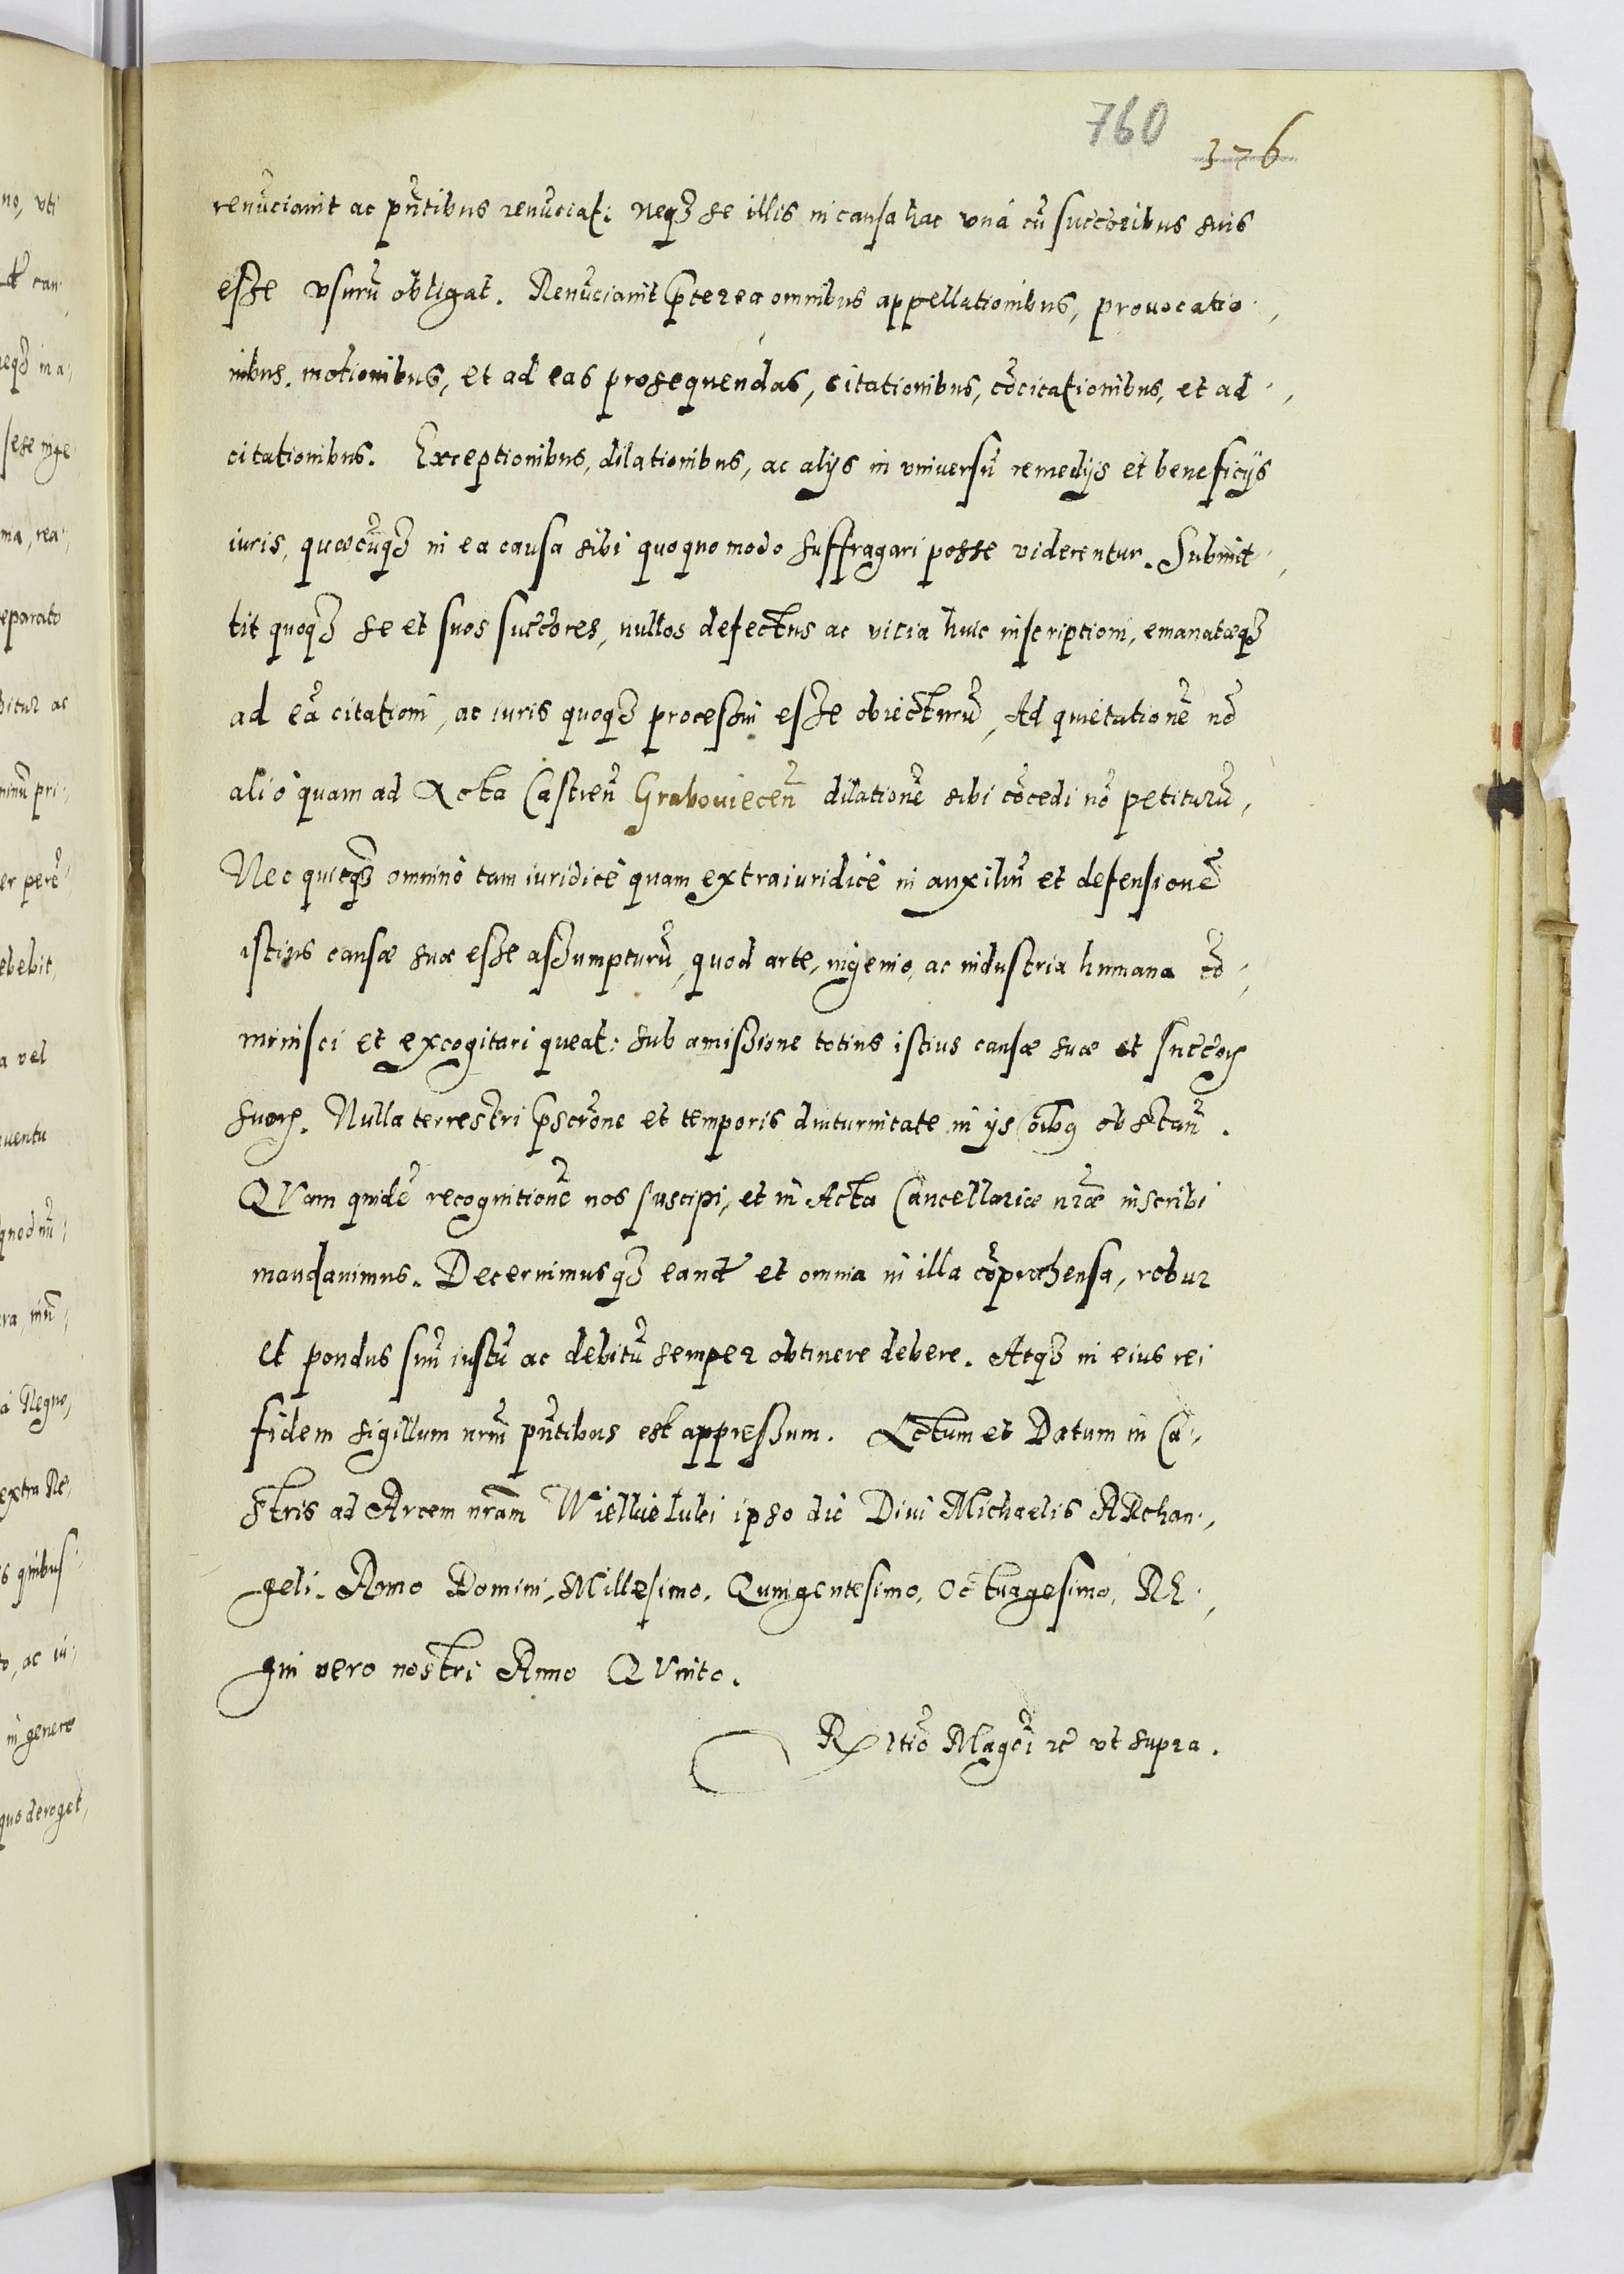 760
376
no, vti
renūciauit ac pn̄tibus renūciat: neqȝ se illis in causa hac vná cū succ̄oribus suis
esse vsurū obligat. Renūciauit p̄terea omnibus appellationibus, prouocatio,
nibus. motionibus, et ad eas prosequendas, citationibus, cōcitationibus, et ad,
citationibus. Exceptionibus, dilationibus, ac alijs in vniversū remedijs et beneficijs
iuris, quæcūqȝ in ea causa sibi quoquo modo suffragari posse viderentur. Submit,
tit quoqȝ se et suos succ̄ores, nullos defectus ac vicia huic inscriptioni, emanatæqȝ
ad eā citationi, ac iuris quoqȝ processui esse obiecturū, Ad quietationē nō
alió quam ad Acta Castren̄ Grabouiecen̄ dilationē sibi cōcedi nō petiturū,
Nec quicqȝ omninò tam iuridicè quam extraiuridicè in auxiliū et defensionē
istius causæ suæ esse assumpturū, quod arte, ingenio, ac industria humana cō,
minisci et excogitari queat: sub amissione totius istius causæ suæ et succ̄oꝝ
suoꝝ. Nulla terrestri p̄scr̄one et temporis diuturnitate in ijs oībꝫ obstan̄.
QVam quidē recognitionē nos suscipi, et in Acta Cancellariæ nr̄æ inscribi
mandauimus. Decernimusqȝ eand̄ et omnia in illa cōpræhensa, robur
et pondus suū iustū ac debitū semper obtinere debere. Atqȝ in eius rei
fidem sigillum nrūm pn̄tibus est appressum. Actum et Datum in Ca,
stris ad Arcem nrām Wielkieluki ipso die Diui Michaelis ARchan,
geli. Anno Domini, Millesimo. Quingentesimo, Octuagesimo, RE,
gni vero nostri Anno QVinto.
Rltiō Mag̃ci ꝛc̄ vt supra.